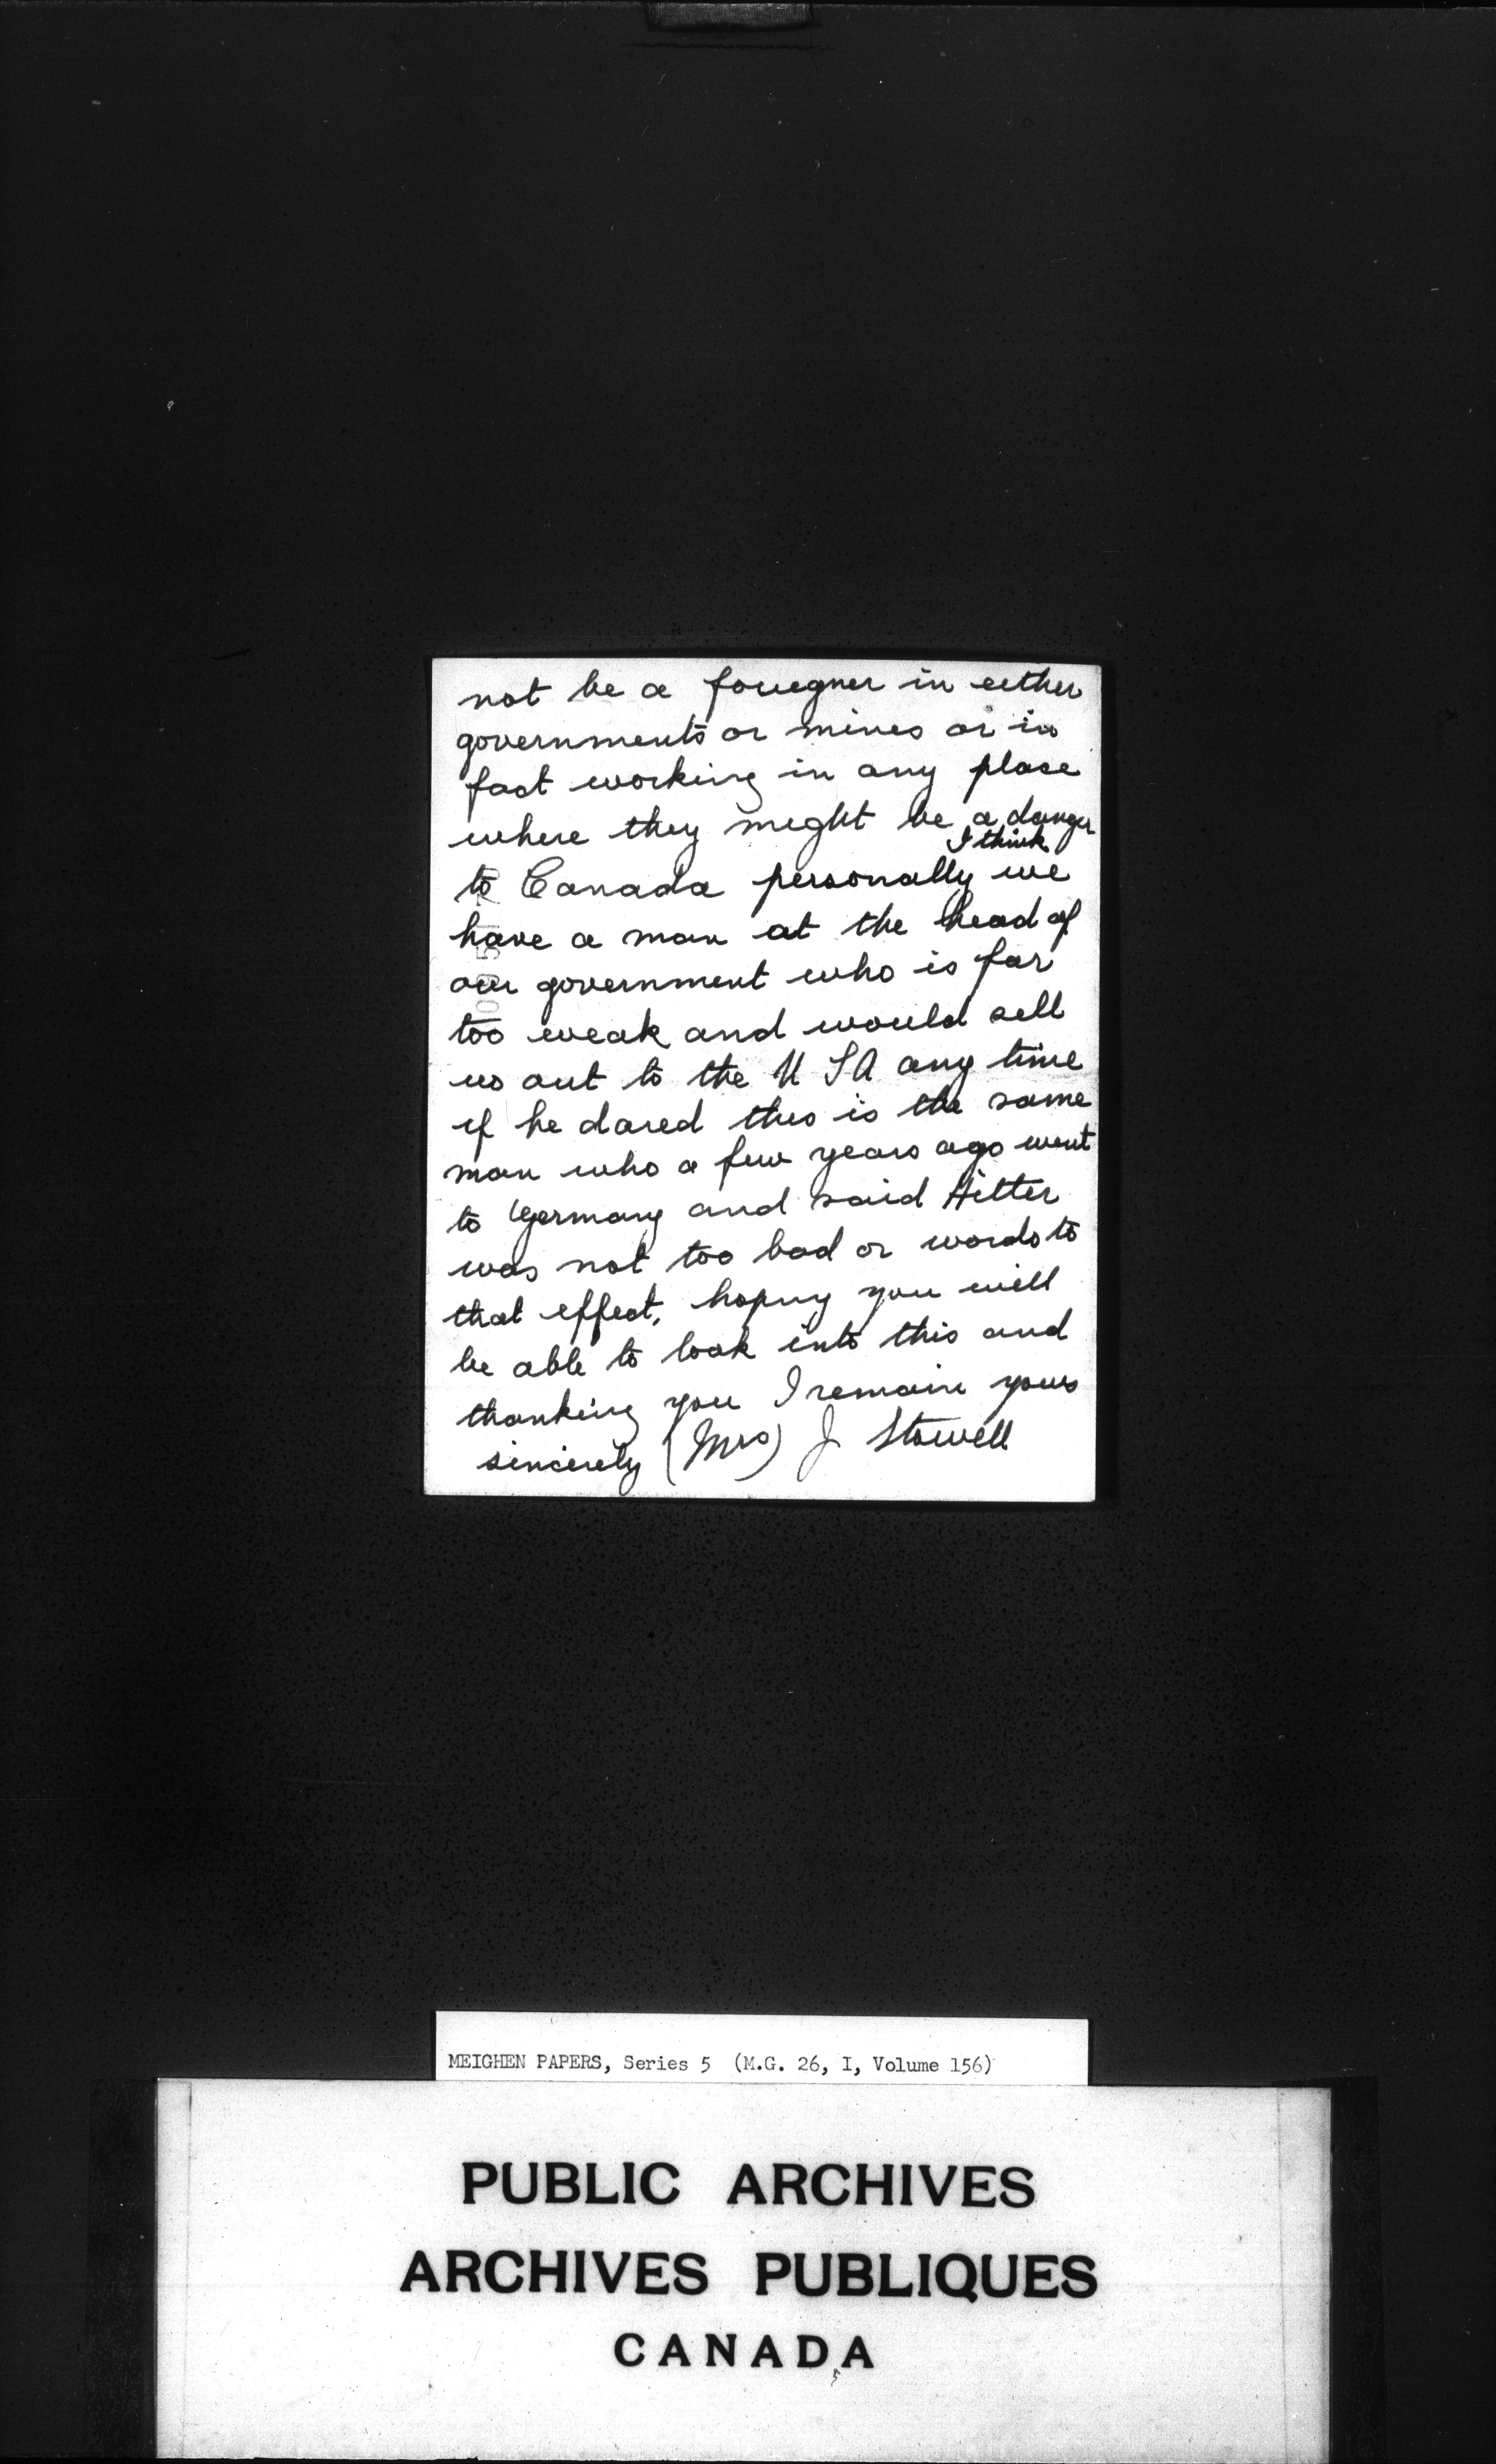 not be a foriegner in either
governments or mines or in
fact working in any place
where they might be a danger
I think
to Canada personally we
have a man at the head of
our government who is far
too weak and would sell
us out to the U S A any time
if he dared this is the same
man who a few years ago went
to Germany and said Hitler
was not too bad or words to
that effect, hoping you will
be able to look into this and
thanking you I remain yours
sincerely (Mrs) J Stowell
MEIGHEN PAPERS, Series 5 (M.G. 26, I, Volume 156)
PUBLIC ARCHIVES
ARCHIVES PUBLIQUES
CANADA